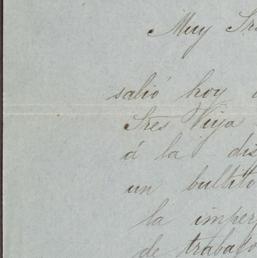 Muy Sr
salió hoy
Tres Viya
á la dis
un bultito
la imper
de trabajo